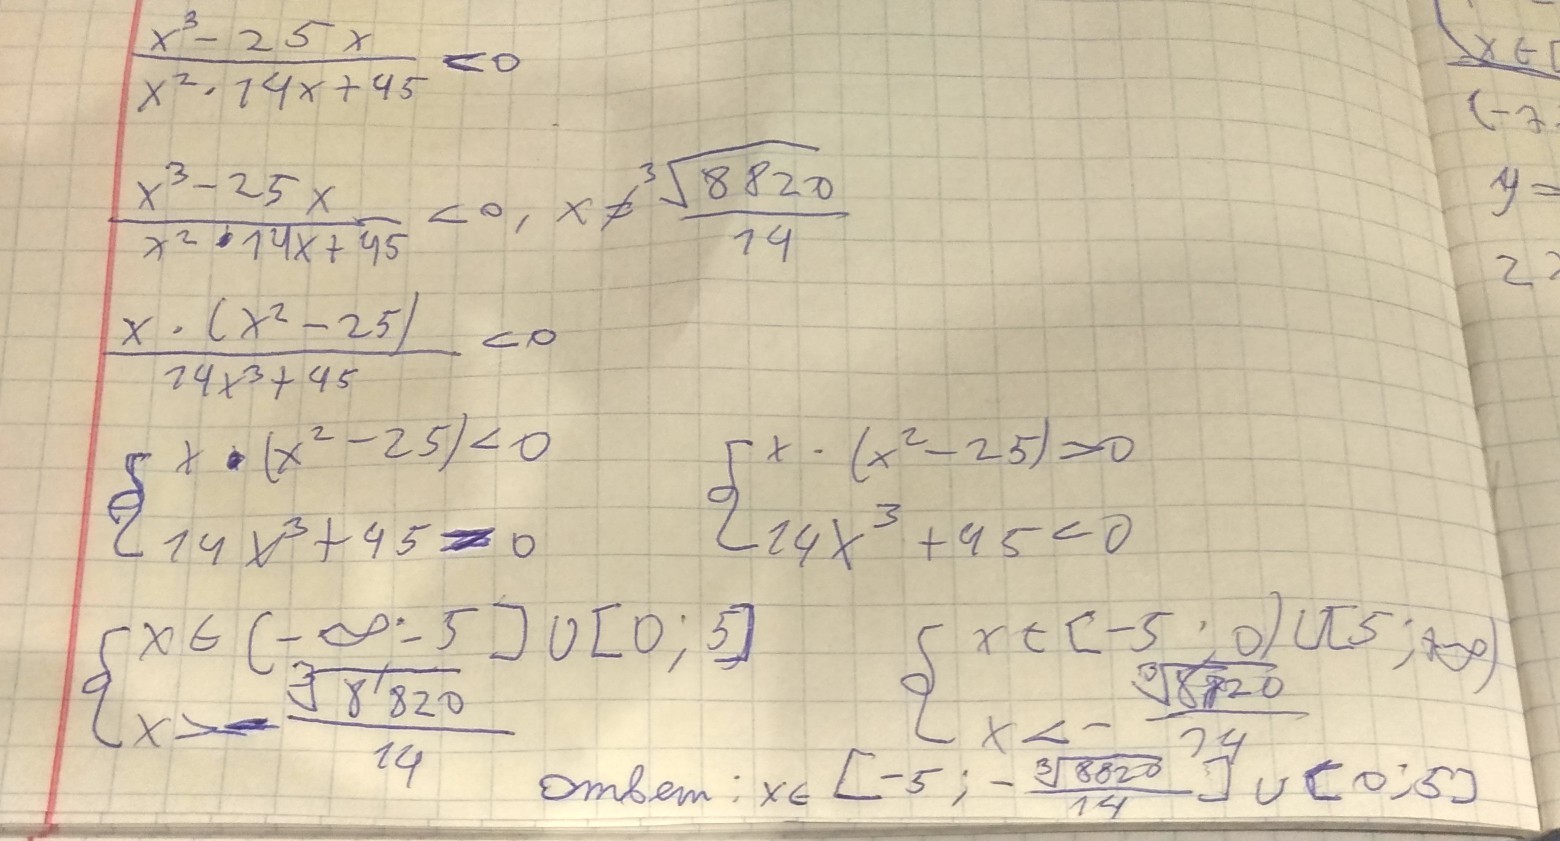 x³ - 25x / x² · 14x + 45 < 0
x³ - 25x / x² · 14x + 45 < 0, x ≠ ³√8820 / 14
x · (x² - 25) / 14x³ + 45 < 0
{ x · (x² - 25) < 0 { x · (x² - 25) > 0
{ 14x³ + 45 > 0 { 14x³ + 45 < 0
{ x ∈ (-∞; -5] ∪ [0; 5] { x ∈ [-5; 0) ∪ [5; +∞)
{ x > - ³√8820 / 14 { x < - ³√8820 / 14
ответ: x ∈ [-5; - ³√8820 / 14] ∪ [0; 5]
x ∈ [
(-7
y =
2x